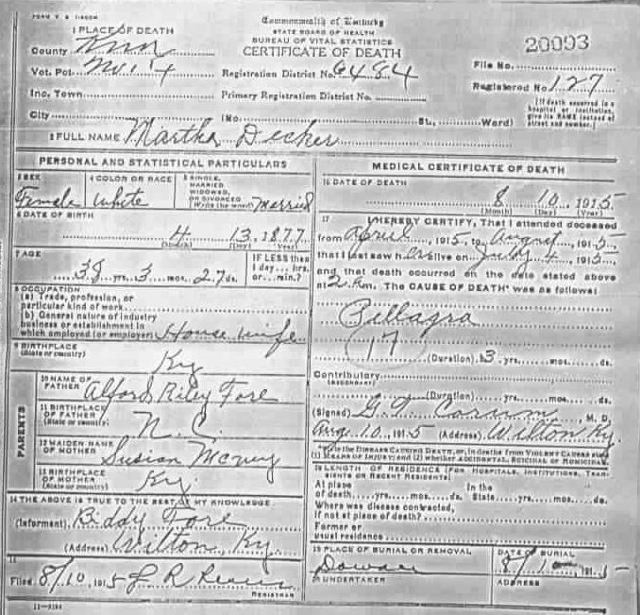 Commonwealth of Kentucky
STATE BOARD OF HEALTH
BUREAU OF VITAL STATISTICS
CERTIFICATE OF DEATH
1 PLACE OF DEATH
County
Vot. Pct. No. 14
Inc. Town
City
Registration District No. 6484
Primary Registration District No.
(No. St., Ward)
20093
File No.
Registered No. 127
(If death occurred in a hospital or institution, give its NAME instead of street and number.)
2 FULL NAME Martha Decker
PERSONAL AND STATISTICAL PARTICULARS
3 SEX Female
4 COLOR OR RACE White
5 SINGLE, MARRIED WIDOWED, OR DIVORCED (Write the word) Married
6 DATE OF BIRTH
4 13, 1877
(Month) (Day) (Year)
7 AGE
38 yrs. 3 mos. 27 ds.
IF LESS than 1 day... hrs. or... min.?
8 OCCUPATION
(a) Trade, profession, or particular kind of work
(b) General nature of industry
business or establishment in
which employed (or employer) House wife
9 BIRTHPLACE
(State or country) Ky
PARENTS
10 NAME OF FATHER Alford Riley Fore
11 BIRTHPLACE OF FATHER
(State or country) N. C.
12 MAIDEN NAME OF MOTHER Susian
13 BIRTHPLACE OF MOTHER
(State or country) Ky.
14 THE ABOVE IS TRUE TO THE BEST OF MY KNOWLEDGE
(Informant) Biddy Fore
(Address) Wilton, Ky
15
Filed 8/10, 1915 J R
REGISTRAR
11-3184
MEDICAL CERTIFICATE OF DEATH
16 DATE OF DEATH
8 10, 1915
(Month) (Day) (Year)
17 I HEREBY CERTIFY, That I attended deceased
from April, 1915, to August, 1915,
that I last saw h alive on July 4, 1915,
and that death occurred on the date stated above
at 2 m. The CAUSE OF DEATH* was as follows:
Pellagra
17
(Duration) 3 yrs. mos. ds.
Contributory
(SECONDARY)
(Duration) yrs. mos. ds.
(Signed) M. D.
Aug. 10, 1915 (Address) Wilton Ky.
*State the DISEASE CAUSING DEATH, or, in deaths from VIOLENT CAUSES state
(1) MEANS OF INJURY; and (2) whether ACCIDENTAL, SUICIDAL or HOMICIDAL.
18 LENGTH OF RESIDENCE (FOR HOSPITALS, INSTITUTIONS, TRANSIENTS OR RECENT RESIDENTS)
At place of death yrs. mos. ds. In the State yrs. mos. ds.
Where was disease contracted,
if not at place of death?
Former or
usual residence
19 PLACE OF BURIAL OR REMOVAL
DATE OF BURIAL
8/1 1915
20 UNDERTAKER
ADDRESS